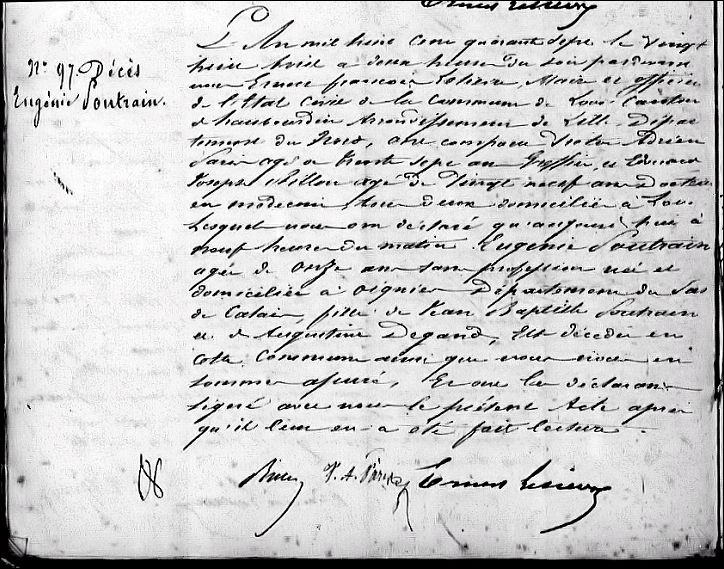 N° 97. Décès
Eugénie Poutrain.
L'An mil huit cent quarante sept le vingt
huit avril a deux heures du soir pardevant
nous Ernest françois Lesieur Maire et officier
de l'Etat Civil de la Commune de Loos Canton
d'haubourdin Arrondissement de Lille Dépar
tement du Nord, ont comparu Victor Adrien
agé de trente sept ans Greffier, et
Joseph Billon agé de vingt neuf ans Docteur
en médecine, tous deux domiciliés à Loos
Lesquels nous ont déclaré qu'aujourd'hui à
neuf heures du matin Eugénie Poutrain
agée de onze ans sans profession née et
domiciliée à Oignies Département du Pas
de Calais, fille de Jean Baptiste Poutrain
et d'Augustine Degand, Est décédée en
cette Commune ainsi que nous nous en
sommes assuré, Et ont les déclarans
signé avec nous le présent Acte après
qu'il leur en a été fait lecture.
V. A. Ernest Lesieur